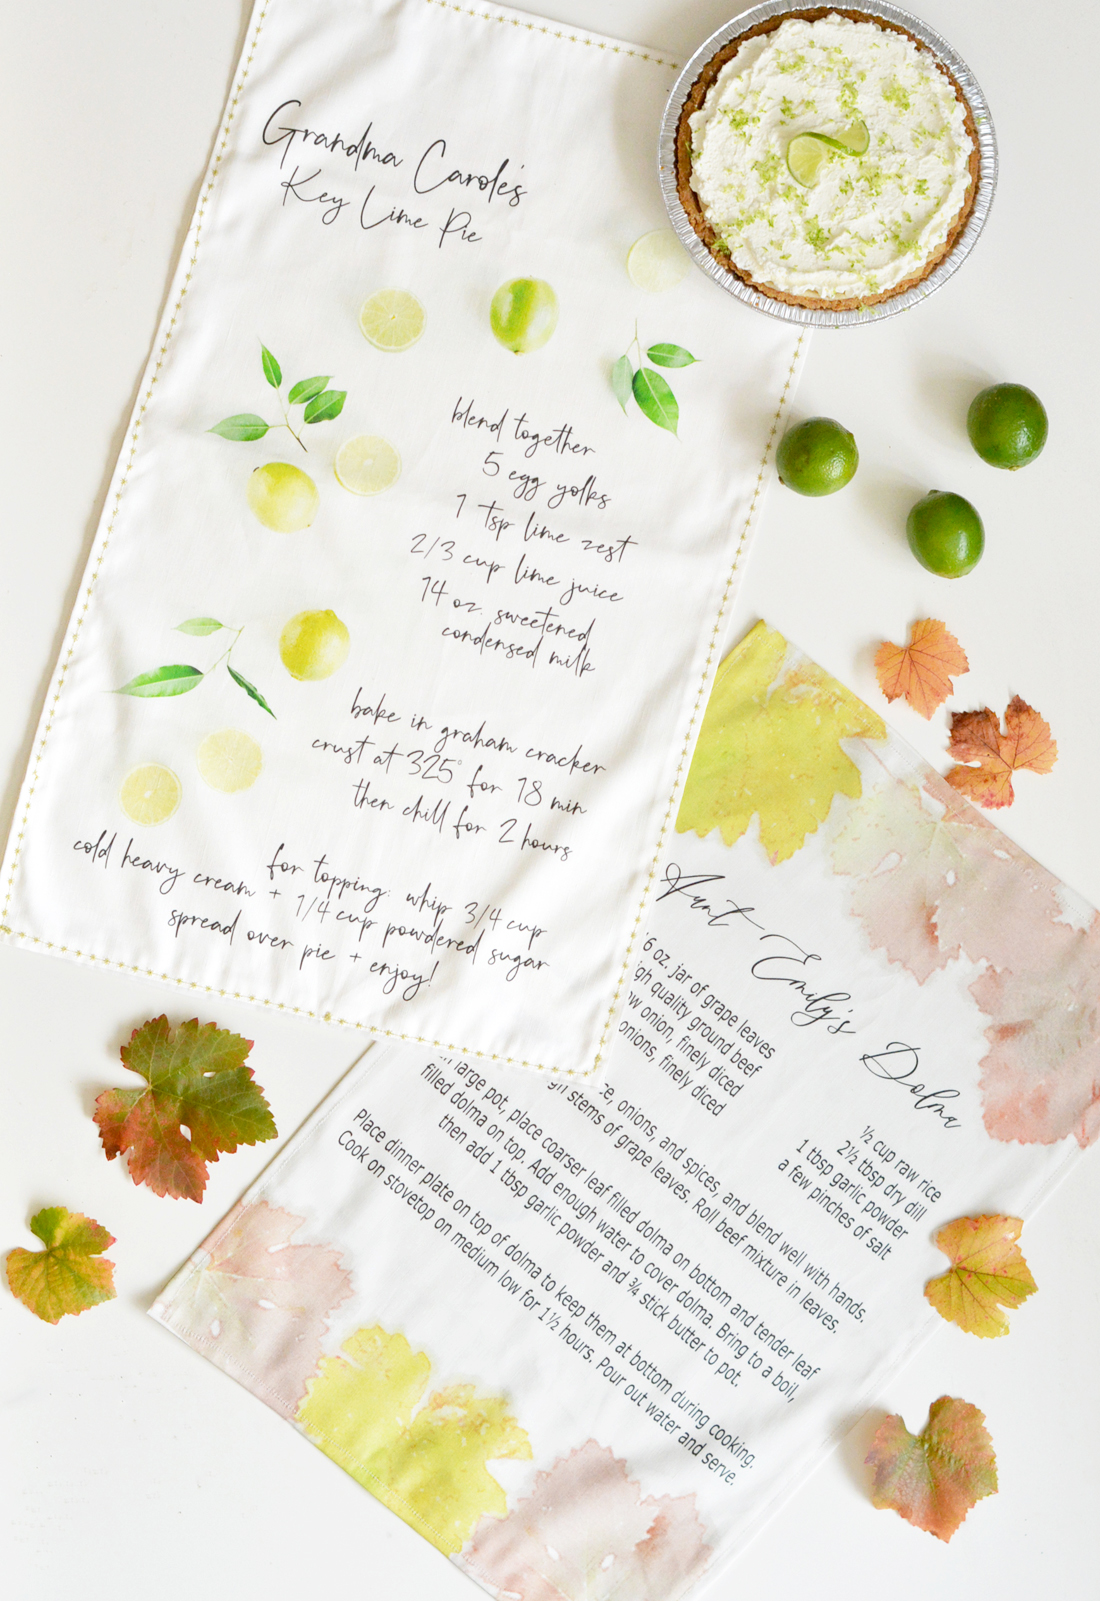 Grandma Carole's
Key Lime Pie
blend together
5 egg yolks
1 tsp lime zest
2/3 cup lime juice
14 oz. sweetened
condensed milk
bake in graham cracker
crust at 325° for 18 min
then chill for 2 hours
for topping: whip 3/4 cup
cold heavy cream + 1/4 cup powdered sugar
spread over pie + enjoy!
Aunt Emily's Dolma
6 oz. jar of grape leaves
quality ground beef
onion, finely diced
onions, finely diced
½ cup raw rice
2½ tbsp dry dill
1 tbsp garlic powder
a few pinches of salt
onions, and spices, and blend well with hands.
stems of grape leaves. Roll beef mixture in leaves.
large pot, place coarser leaf filled dolma on bottom and tender leaf
filled dolma on top. Add enough water to cover dolma. Bring to a boil,
then add 1 tbsp garlic powder and ¾ stick butter to pot.
Place dinner plate on top of dolma to keep them at bottom during cooking.
Cook on stovetop on medium low for 1½ hours. Pour out water and serve.